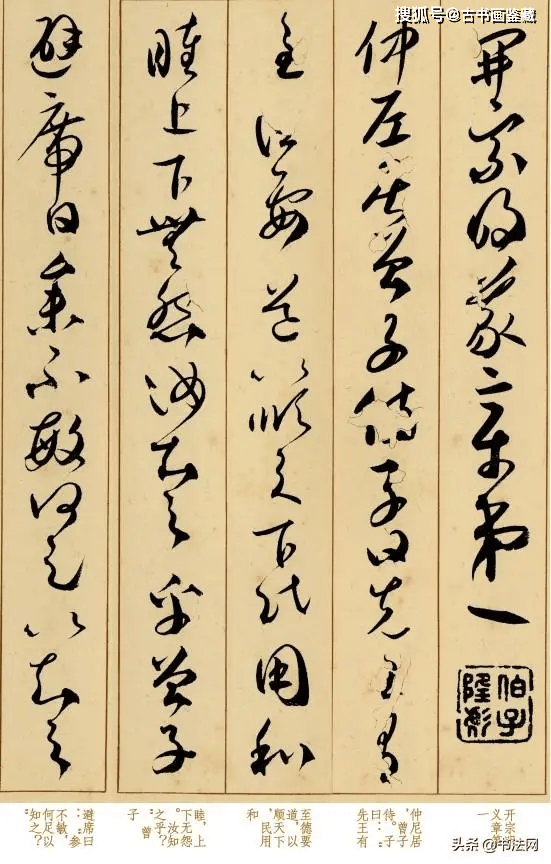 搜狐号@古书画鉴藏
開宗明義章第一
仲尼居曾子侍子曰先王有
至德要道以順天下民用和
睦上下無怨汝知之乎曾子
避席曰參不敏何足以知之
仲尼居
，曾子
侍。子
曰：
先王有
至德要
道，以
顺天下
，民用
和
睦，上
下无怨
。汝知
之乎？曾
子
避席曰
：“参
不敏，
何足以
知之？
头条 @书法网